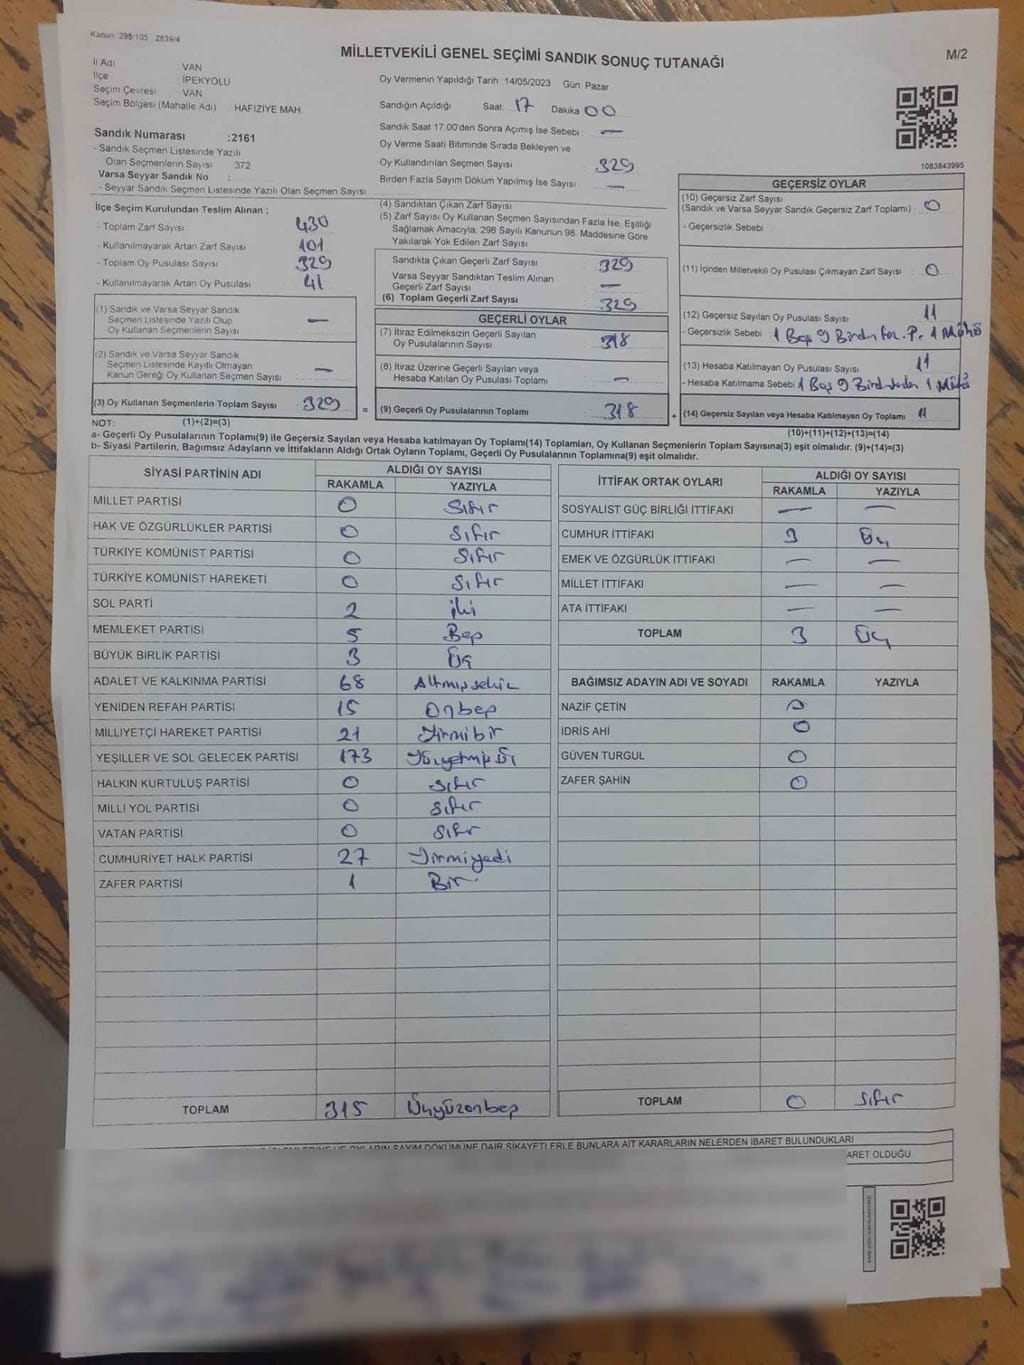 Kanun: 298/105 . 2839/4
MİLLETVEKİLİ GENEL SEÇİMİ SANDIK SONUÇ TUTANAĞI
M/2
İl Adı VAN
İlçe İPEKYOLU
Seçim Çevresi VAN
Seçim Bölgesi (Mahalle Adı) HAFIZİYE MAH.
Sandık Numarası :2161
- Sandık Seçmen Listesinde Yazılı
Olan Seçmenlerin Sayısı 372
Varsa Seyyar Sandık No :
- Seyyar Sandık Seçmen Listesinde Yazılı Olan Seçmen Sayısı
Oy Vermenin Yapıldığı Tarih :14/05/2023 Gün: Pazar
Sandığın Açıldığı Saat: 17 Dakika 00
Sandık Saat 17:00'den Sonra Açımış İse Sebebi : —
Oy Verme Saati Bitiminde Sırada Bekleyen ve
Oy Kullandırılan Seçmen Sayısı 329
Birden Fazla Sayım Döküm Yapılmış İse Sayısı —
1083843995
İlçe Seçim Kurulundan Teslim Alınan ;
- Toplam Zarf Sayısı 430
- Kullanılmayarak Artan Zarf Sayısı 101
- Toplam Oy Pusulası Sayısı 329
- Kullanılmayarak Artan Oy Pusulası 41
(1) Sandık ve Varsa Seyyar Sandık
Seçmen Listesinde Yazılı Olup
Oy Kullanan Seçmenlerin Sayısı —
(2) Sandık ve Varsa Seyyar Sandık
Seçmen Listesinde Kayıtlı Olmayan
Kanun Gereği Oy Kullanan Seçmen Sayısı —
(3) Oy Kullanan Seçmenlerin Toplam Sayısı 329 =
(1)+(2)=(3)
(4) Sandıktan Çıkan Zarf Sayısı
(5) Zarf Sayısı Oy Kullanan Seçmen Sayısından Fazla İse, Eşitliği
Sağlamak Amacıyla, 298 Sayılı Kanunun 98. Maddesine Göre
Yakılarak Yok Edilen Zarf Sayısı
Sandıkta Çıkan Geçerli Zarf Sayısı 329
Varsa Seyyar Sandıktan Teslim Alınan
Geçerli Zarf Sayısı —
(6) Toplam Geçerli Zarf Sayısı 329
GEÇERLİ OYLAR
(7) İtiraz Edilmeksizin Geçerli Sayılan
Oy Pusulalarının Sayısı 318
(8) İtiraz Üzerine Geçerli Sayılan veya
Hesaba Katılan Oy Pusulası Toplamı —
(9) Geçerli Oy Pusulalarının Toplamı 318 +
GEÇERSİZ OYLAR
(10) Geçersiz Zarf Sayısı
(Sandık ve Varsa Seyyar Sandık Geçersiz Zarf Toplamı) : 0
- Geçersizlik Sebebi
(11) İçinden Milletvekili Oy Pusulası Çıkmayan Zarf Sayısı 0
(12) Geçersiz Sayılan Oy Pusulası Sayısı 11
- Geçersizlik Sebebi : 1 Boş 9 Birden faz. P. 1 Mühü
(13) Hesaba Katılmayan Oy Pusulası Sayısı 11
- Hesaba Katılmama Sebebi 1 Boş 9 Birden 1
(14) Geçersiz Sayılan veya Hesaba Katılmayan Oy Toplamı 11
(10)+(11)+(12)+(13)=(14)
NOT:
a- Geçerli Oy Pusulalarının Toplamı(9) ile Geçersiz Sayılan veya Hesaba katılmayan Oy Toplamı(14) Toplamları, Oy Kullanan Seçmenlerin Toplam Sayısına(3) eşit olmalıdır. (9)+(14)=(3)
b- Siyasi Partilerin, Bağımsız Adayların ve İttifakların Aldığı Ortak Oyların Toplamı, Geçerli Oy Pusulalarının Toplamına(9) eşit olmalıdır.
SİYASİ PARTİNİN ADI ALDIĞI OY SAYISI
RAKAMLA YAZIYLA
MİLLET PARTİSİ 0 Sıfır
HAK VE ÖZGÜRLÜKLER PARTİSİ 0 Sıfır
TÜRKİYE KOMÜNİST PARTİSİ 0 Sıfır
TÜRKİYE KOMÜNİST HAREKETİ 0 Sıfır
SOL PARTİ 2 iki
MEMLEKET PARTİSİ 5 Beş
BÜYÜK BİRLİK PARTİSİ 3 Üç
ADALET VE KALKINMA PARTİSİ 68 Altmışsekiz
YENİDEN REFAH PARTİSİ 15 Onbeş
MİLLİYETÇİ HAREKET PARTİSİ 21 Yirmibir
YEŞİLLER VE SOL GELECEK PARTİSİ 173 Yüzyetmiş Üç
HALKIN KURTULUŞ PARTİSİ 0 Sıfır
MİLLİ YOL PARTİSİ 0 Sıfır
VATAN PARTİSİ 0 Sıfır
CUMHURİYET HALK PARTİSİ 27 Yirmiyedi
ZAFER PARTİSİ 1 Bir
TOPLAM 315 Üçyüzonbeş
İTTİFAK ORTAK OYLARI ALDIĞI OY SAYISI
RAKAMLA YAZIYLA
SOSYALİST GÜÇ BİRLİĞİ İTTİFAKI — —
CUMHUR İTTİFAKI 3 Üç
EMEK VE ÖZGÜRLÜK İTTİFAKI — —
MİLLET İTTİFAKI — —
ATA İTTİFAKI — —
TOPLAM 3 Üç
BAĞIMSIZ ADAYIN ADI VE SOYADI RAKAMLA YAZIYLA
NAZİF ÇETİN 0
İDRİS AHİ 0
GÜVEN TURGUL 0
ZAFER ŞAHİN 0
TOPLAM 0 Sıfır
OYLARIN SAYIM DÖKÜMÜNE DAİR ŞİKAYETLERLE BUNLARA AİT KARARLARIN NELERDEN İBARET BULUNDUKLARI
ARET OLDUĞU